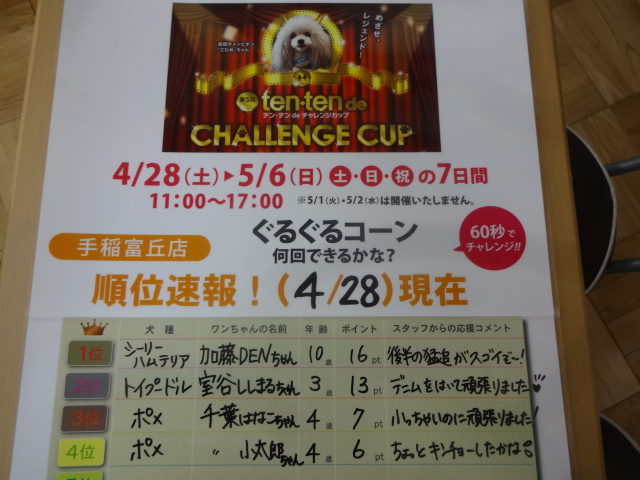 めざせ・
レジェンド！
前回チャンピオン
「こひめ」ちゃん
第5回
ten・ten de
テン・テン de チャレンジカップ
CHALLENGE CUP
4/28(土)▶5/6(日) 土・日・祝の7日間
11:00〜17:00 ※5/1(火)・5/2(水)は開催いたしません。
手稲富丘店
ぐるぐるコーン
何回できるかな？
60秒で
チャレンジ!!
順位速報！(4/28)現在
犬種 ワンちゃんの名前 年齢 ポイント スタッフからの応援コメント
1位 シーリーハムテリア 加藤DENちゃん 10歳 16pt 後半の猛追がスゴイで〜！
2位 トイプードル 室谷ししまるちゃん 3歳 13pt デニムをはいて頑張りました
3位 ポメ 千葉はなこちゃん 4歳 7pt 小っちゃいのに頑張りました！
4位 ポメ 〃 小太郎ちゃん 4歳 6pt ちょっとキンチョーしたかな